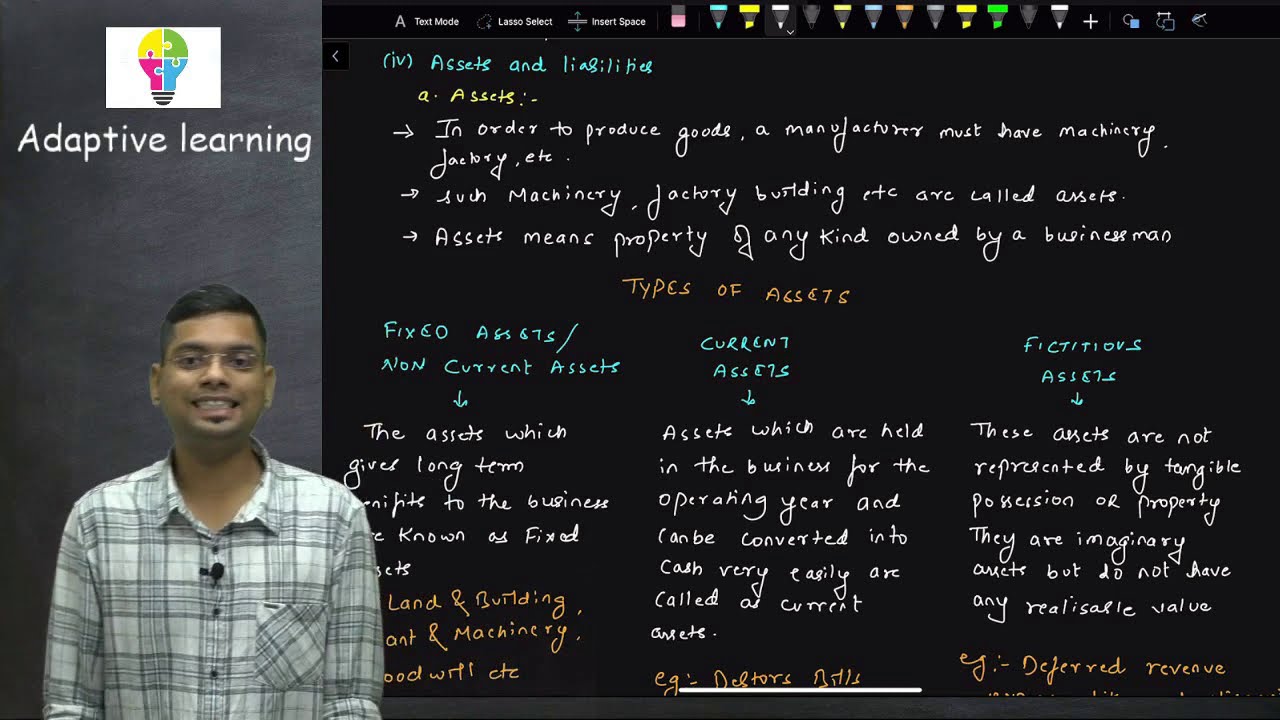 Text Mode
Lasso Select
Insert Space
Adaptive learning
(iv) Assets and liabilities
a. Assets:-
→ In order to produce goods, a manufacturer must have machinery,
factory, etc.
→ such Machinery, factory building etc are called assets.
→ Assets means property of any kind owned by a businessman
TYPES OF ASSETS
FIXED ASSETS/
NON Current Assets
↓
The assets which
gives long term
enifits to the business
Known as Fixed
sets
Land & Building,
ant & Machinery,
oodwill etc
CURRENT
ASSETS
↓
Assets which are held
in the business for the
operating year and
canbe converted into
cash very easily are
called as current
assets.
eg:- Debtors Bills
FICTITIOUS
ASSETS
↓
These assets are not
represented by tangible
possession or property
They are imaginary
assets but do not have
any realisable value
eg:- Deferred revenue